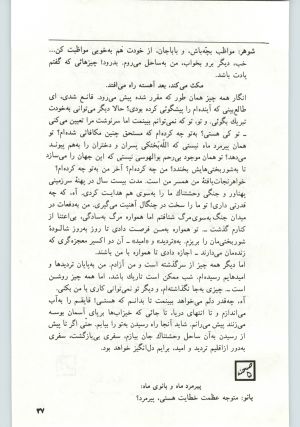 شوهر: مواظب بچّه‌باش، و باباجان، از خودت هم به‌خوبی مواظبت کن...
خب، دیگر برو بخواب، من به‌ساحل می‌روم. بدرود! چیزهائی که گفتم
یادت باشد.
مکث می‌کند، بعد آهسته راه می‌افتد.
انگار همه چیز همان طور که مقرر شده پیش می‌رود. قانع شدی، ای
ظالم‌بینی که آینده‌ام را پیشگوئی کرده بودی؟ حالا دیگر می‌توانی به‌خودت
تبریك بگوئی. و تو، تو که نمی‌توانم ببینمت اما سرنوشت مرا تعیین می‌کنی
ــ تو کی هستی؟ به‌تو چه کرده‌ام که مستحق چنین مکافاتی شده‌ام؟ تو
همان پیرمرد ماه نیستی که الله‌بختکی پسران و دختران را به‌هم پیوند
می‌دهد؟ تو همان موجود بی‌رحم بوالهوسی نیستی که این جهان را می‌سازد
تا به‌شوربختی‌هایش بخندد؟ من چه کرده‌ام؟ آخر من به‌تو چه کرده‌ام؟
خواهرنجات‌یافتهٔ من همسر من است. مدت بیست سال در پهنهٔ سرزمینی
پهناور و جنگی وحشتناك ما را به‌سوی هم هدایت کردی. آه، که چه
قدرتی داری! تو ما را سخت در چنگال آهنیت می‌گیری. من به‌دفعات در
میدان جنگ به‌سوی‌مرگ شتافتم اما همواره مرگ به‌سادگی، بی‌اعتنا از
کنارم گذشت ... تو همواره به‌من فرصت دادی تا روز به‌روز شالودهٔ
شوربختی‌مان را بریزم. به‌«تردید» و «امید» ــ آن دو اکسیر معجزه‌گری که
زنده‌مان می‌دارند ــ اجازه دادی تا همواره با من باشند.
اما دیگر همه چیز از سرگذشته است و من آزادم. من به‌پایان تردیدها و
امیدهایم رسیده‌ام. شب ممکن است تاریك باشد، اما همه چیز روشن
است ... چیزی به‌جا نگذاشته‌ام، و دیگر تو نمی‌توانی کاری با من بکنی.
آه، چه‌قدر دلم می‌خواهد ببینمت تا بدانم که هستی! قایقم را به‌آب
می‌اندازم و تا انتهای دریا، تا جائی که خیزاب‌ها بر‌پای آسمان بوسه
می‌زنند پیش می‌رانم. شاید آنجا راه رسیدن به‌تو را بیابم. حتی اگر تا پیش
از رسیدن به‌آن ساحل وحشتناك جان بازم، سفری بی‌بازگشت، سفری
به‌دور ازاقلیم تردید و امید، برایم دل‌انگیز خواهد بود.
پیرمرد ماه و بانوی ماه:
بانو: متوجه عظمت خطایت هستی، پیرمرد؟
۳۷